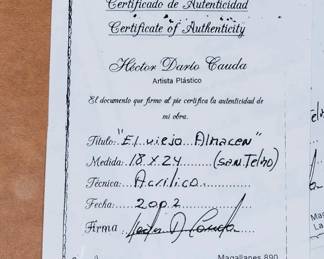 Certificado de Autenticidad
Certificate of Authenticity
Héctor Darío Cauda
Artista Plástico
El documento que firmo al pie certifica la autenticidad de
mi obra.
Título: "El viejo Almacen"
Medida: 18 x 24 (San Telmo)
Técnica: Acrílico
Fecha: 2002
Firma: Hector D Cauda
Magallanes 890